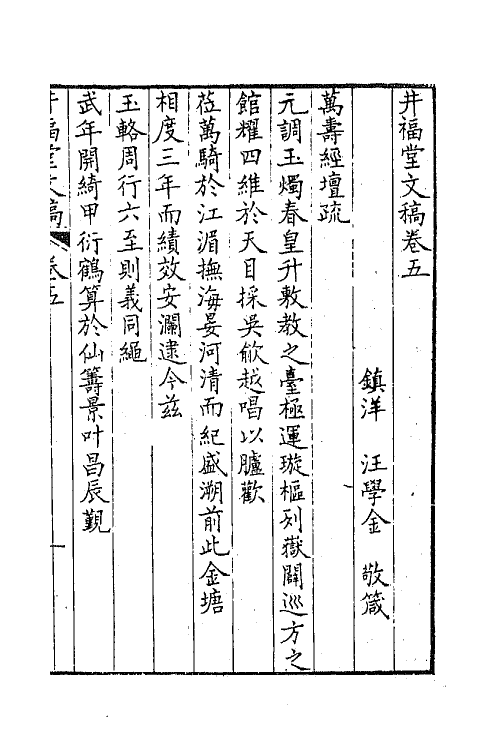 井福堂文稿卷五
鎮洋　汪學金　敬箴
萬壽經壇疏
元調玉燭春皇升敷教之臺極運璇樞列嶽闢巡方之
館耀四維於天目採吳歈越唱以臚歡
莅萬騎於江湄撫海晏河清而紀盛溯前此金塘
相度三年而績效安瀾逮今茲
玉輅周行六至則義同繩
武年開綺甲衍鶴算於仙籌景叶昌辰覲
井福堂文稿　卷五